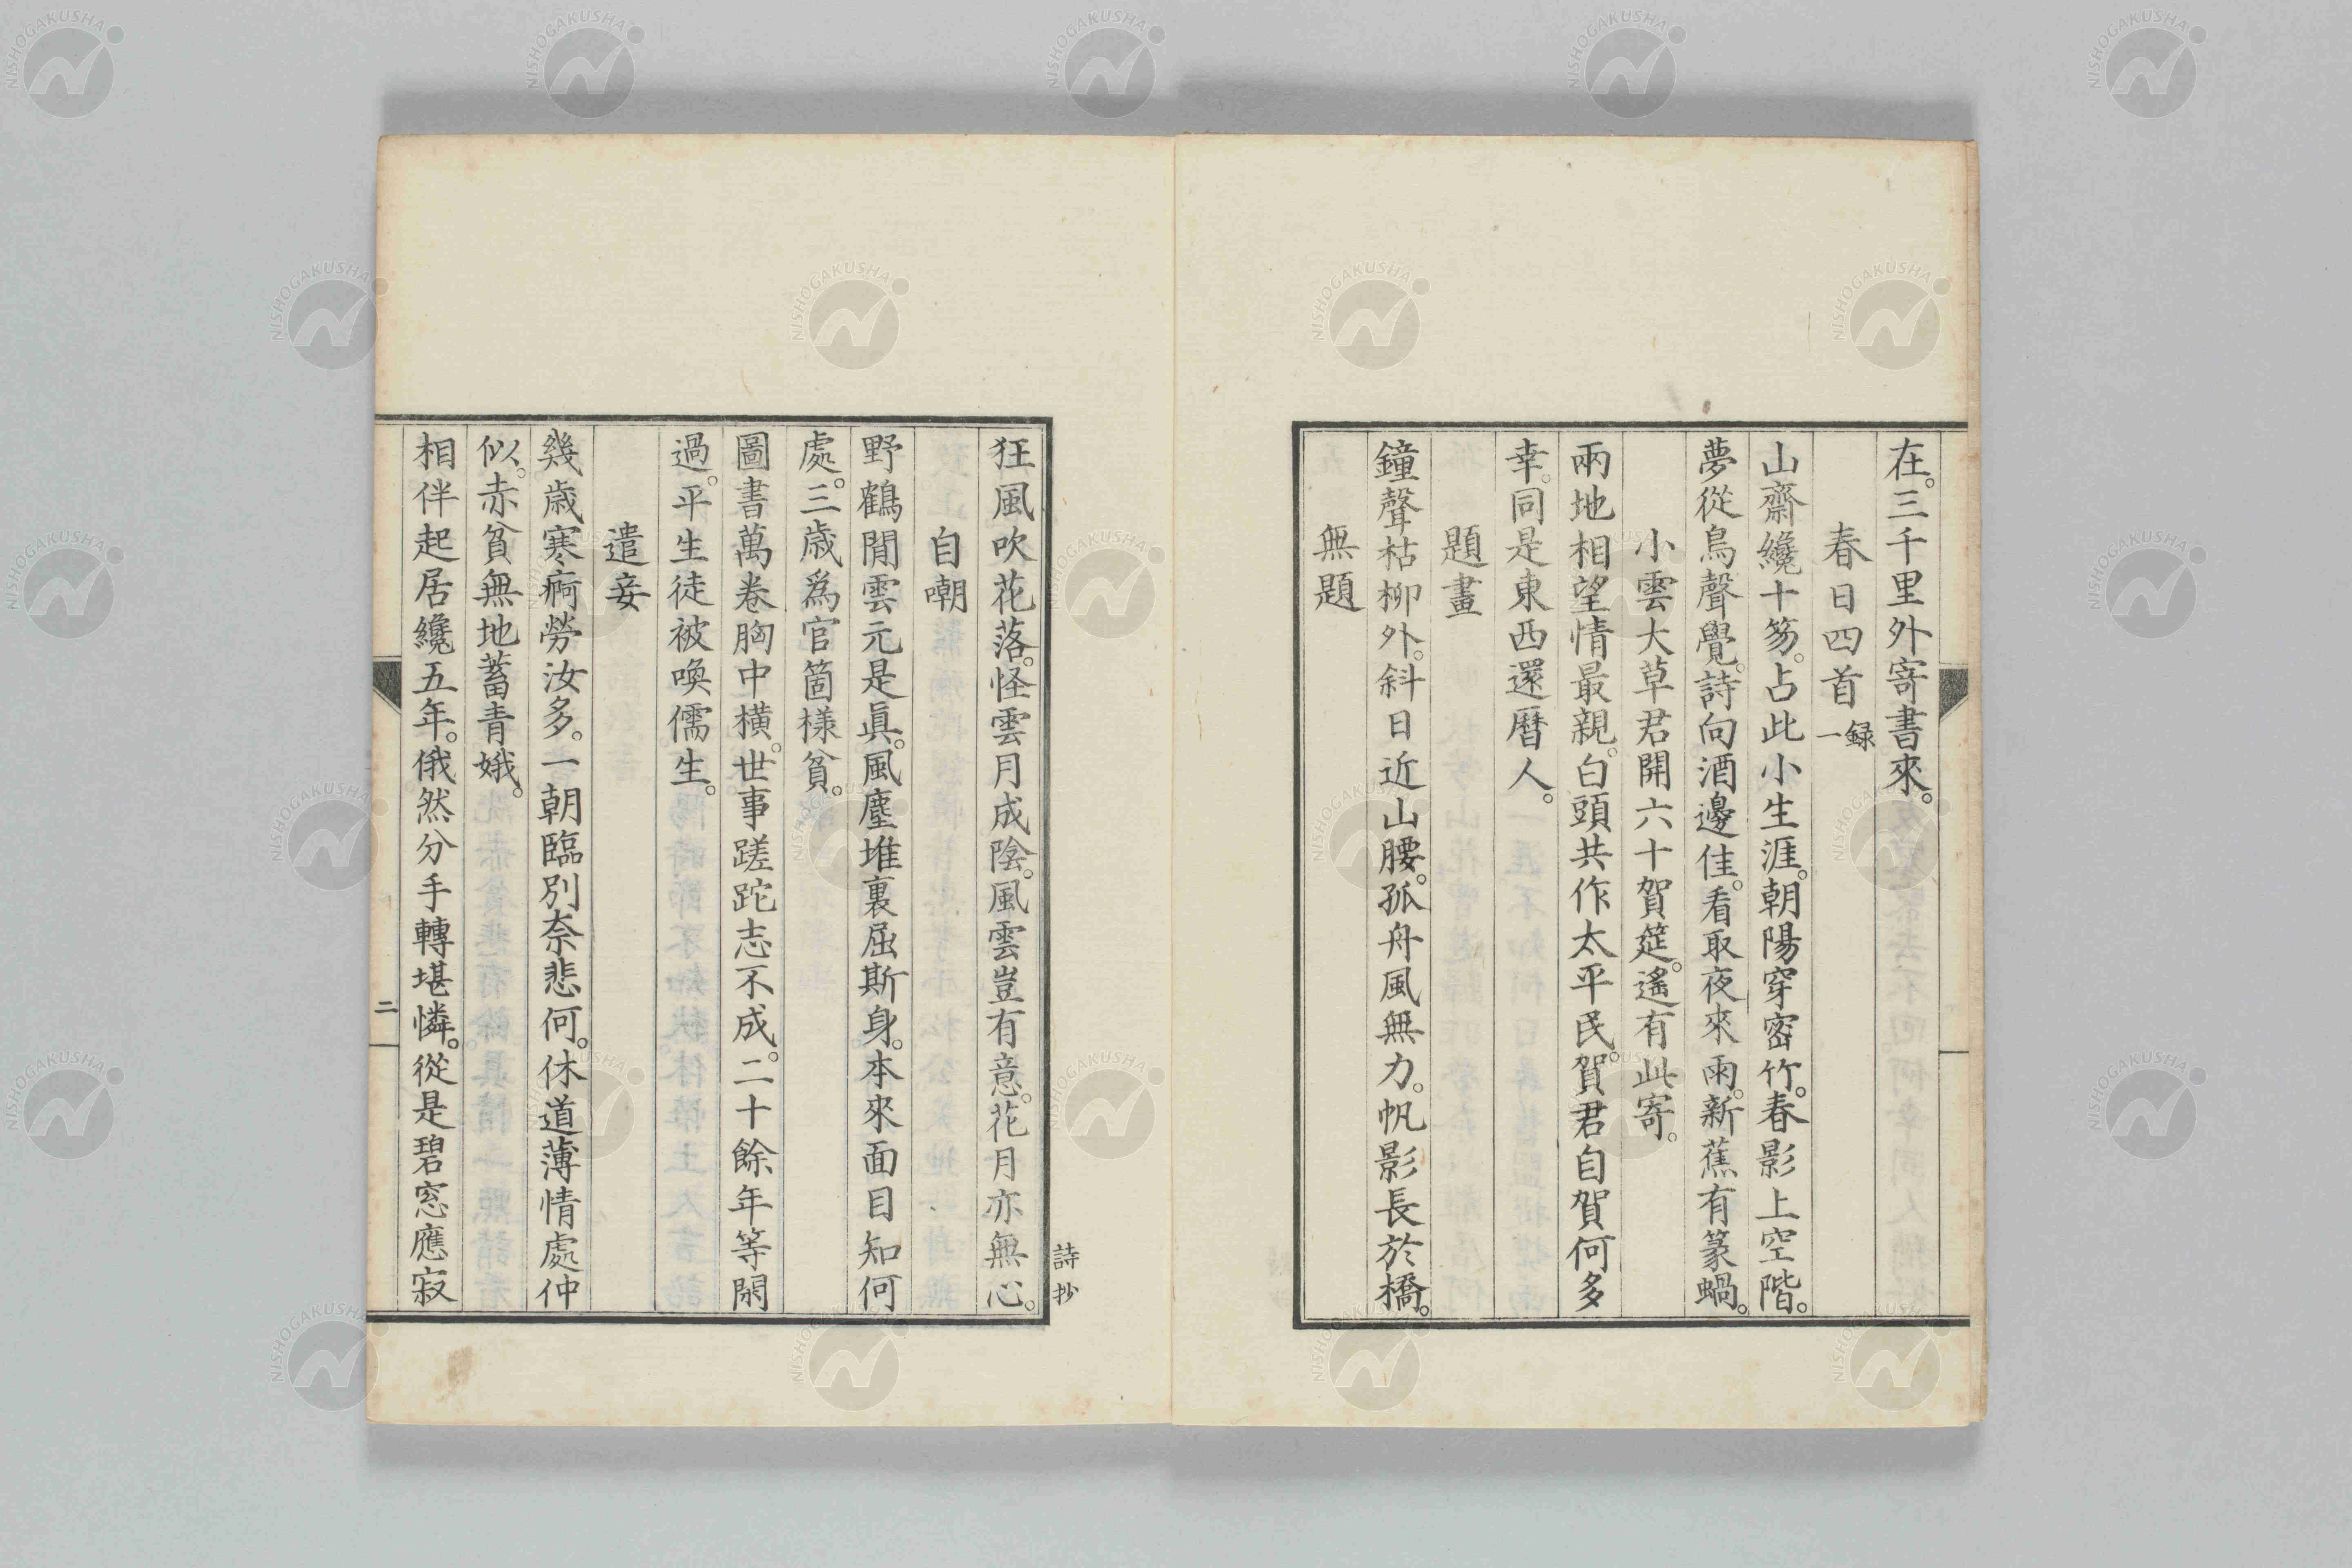 在。三千里外寄書來。
春日四首 錄一
山齋纔十笏。占此小生涯。朝陽穿密竹。春影上空階。
夢從鳥聲覺。詩向酒邊佳。看取夜來雨。新蕉有篆蝸。
小雲大草君開六十賀筵。遙有此寄。
兩地相望情最親。白頭共作太平民。賀君自賀何多
幸。同是東西還曆人。
題畫
鐘聲枯柳外。斜日近山腰。孤舟風無力。帆影長於橋。
無題
狂風吹花落。怪雲月成陰。風雲豈有意。花月亦無心。
自嘲
野鶴閒雲元是眞。風塵堆裏屈斯身。本來面目知何
處。三歲爲官箇樣貧。
圖書萬卷胸中橫。世事蹉跎志不成。二十餘年等閑
過。平生徒被喚儒生。
遣妾
幾歲寒痾勞汝多。一朝臨別奈悲何。休道薄情處仲
似。赤貧無地蓄青娥。
相伴起居纔五年。俄然分手轉堪憐。從是碧窓應寂
詩抄
二
NISHOGAKUSHA